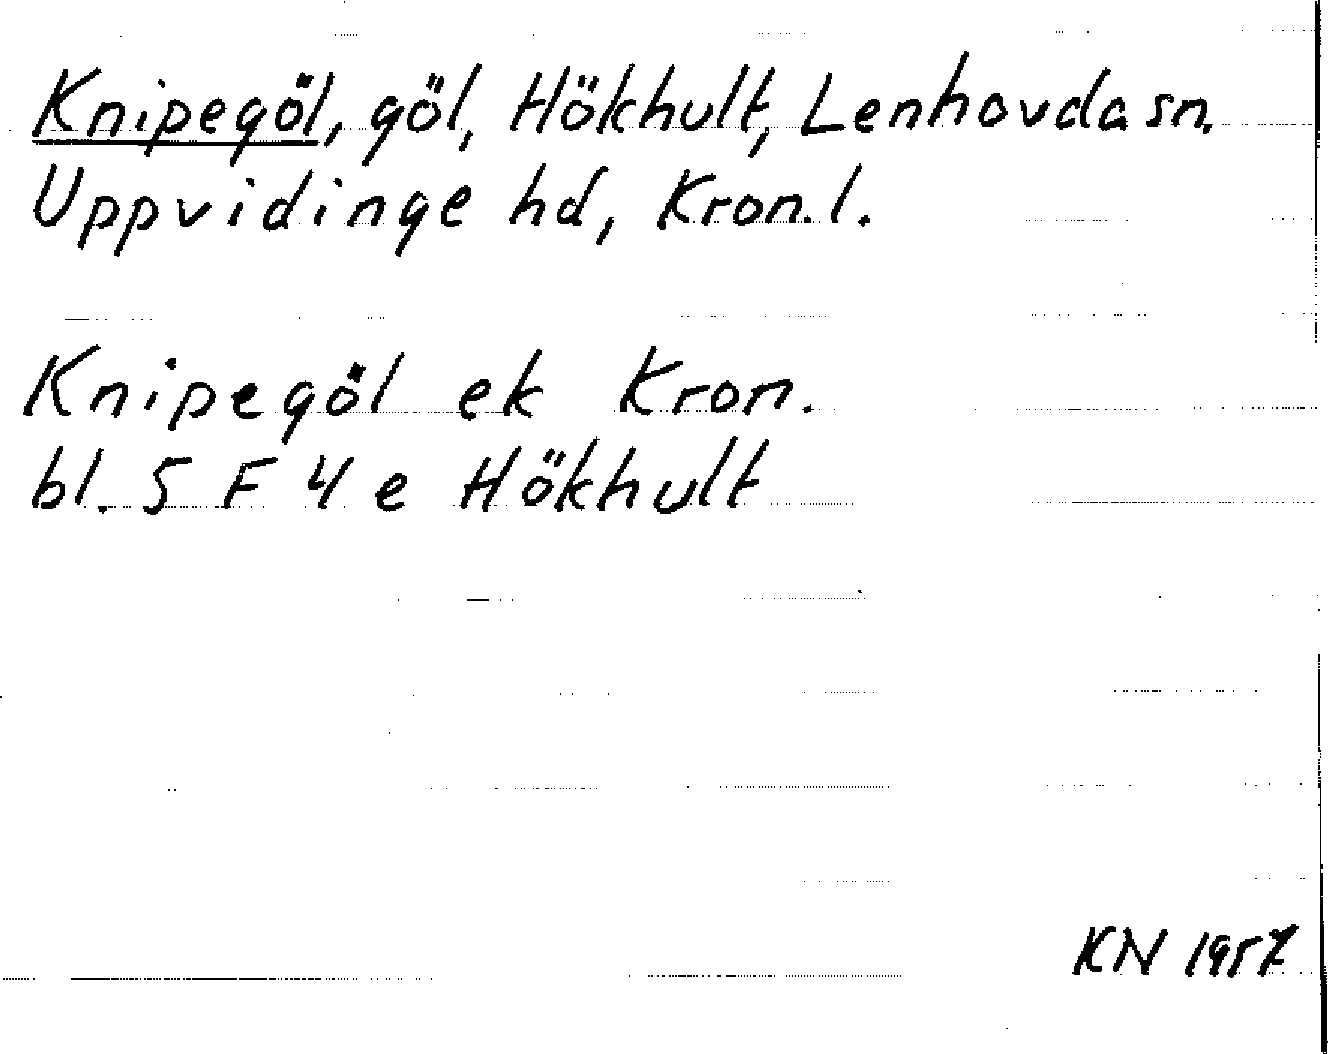 Knipegöl, göl, Hökhult, Lenhovda sn.
Uppvidinge hd, Kron. l.
Knipegöl ek Kron.
bl. 5 F 4 e Hökhult
KN 1957